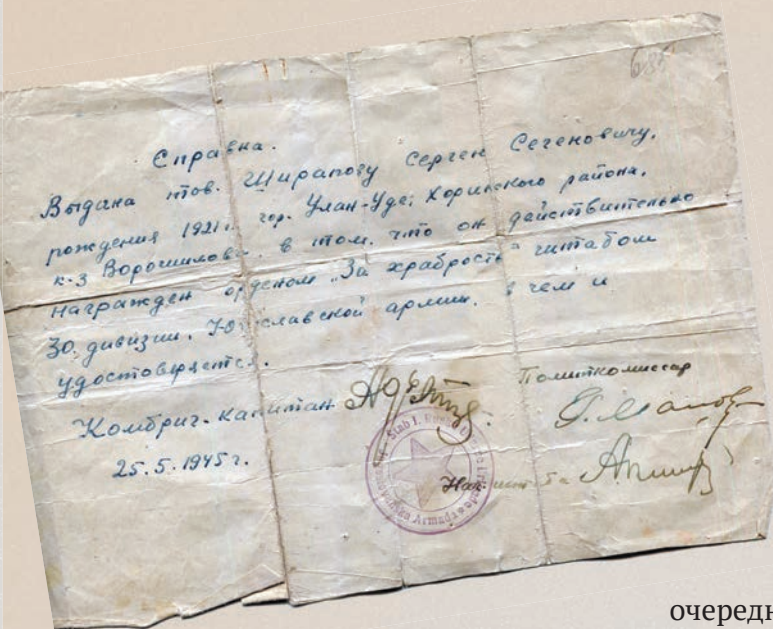 685
Справка.
Выдана тов. Ширапову Сергею Сегеновичу,
рождения 1921 г. гор. Улан-Удэ, Хоринского района,
к-з Ворошилова, в том, что он действительно
награжден орденом „За храбрость" штабом
30 дивизии, Югославской армии. в чем и
удостоверяется.
Комбриг-капитан
Политкомиссар
25.5.1945 г.
Нач. штаба
Stab I. Armada
очередн